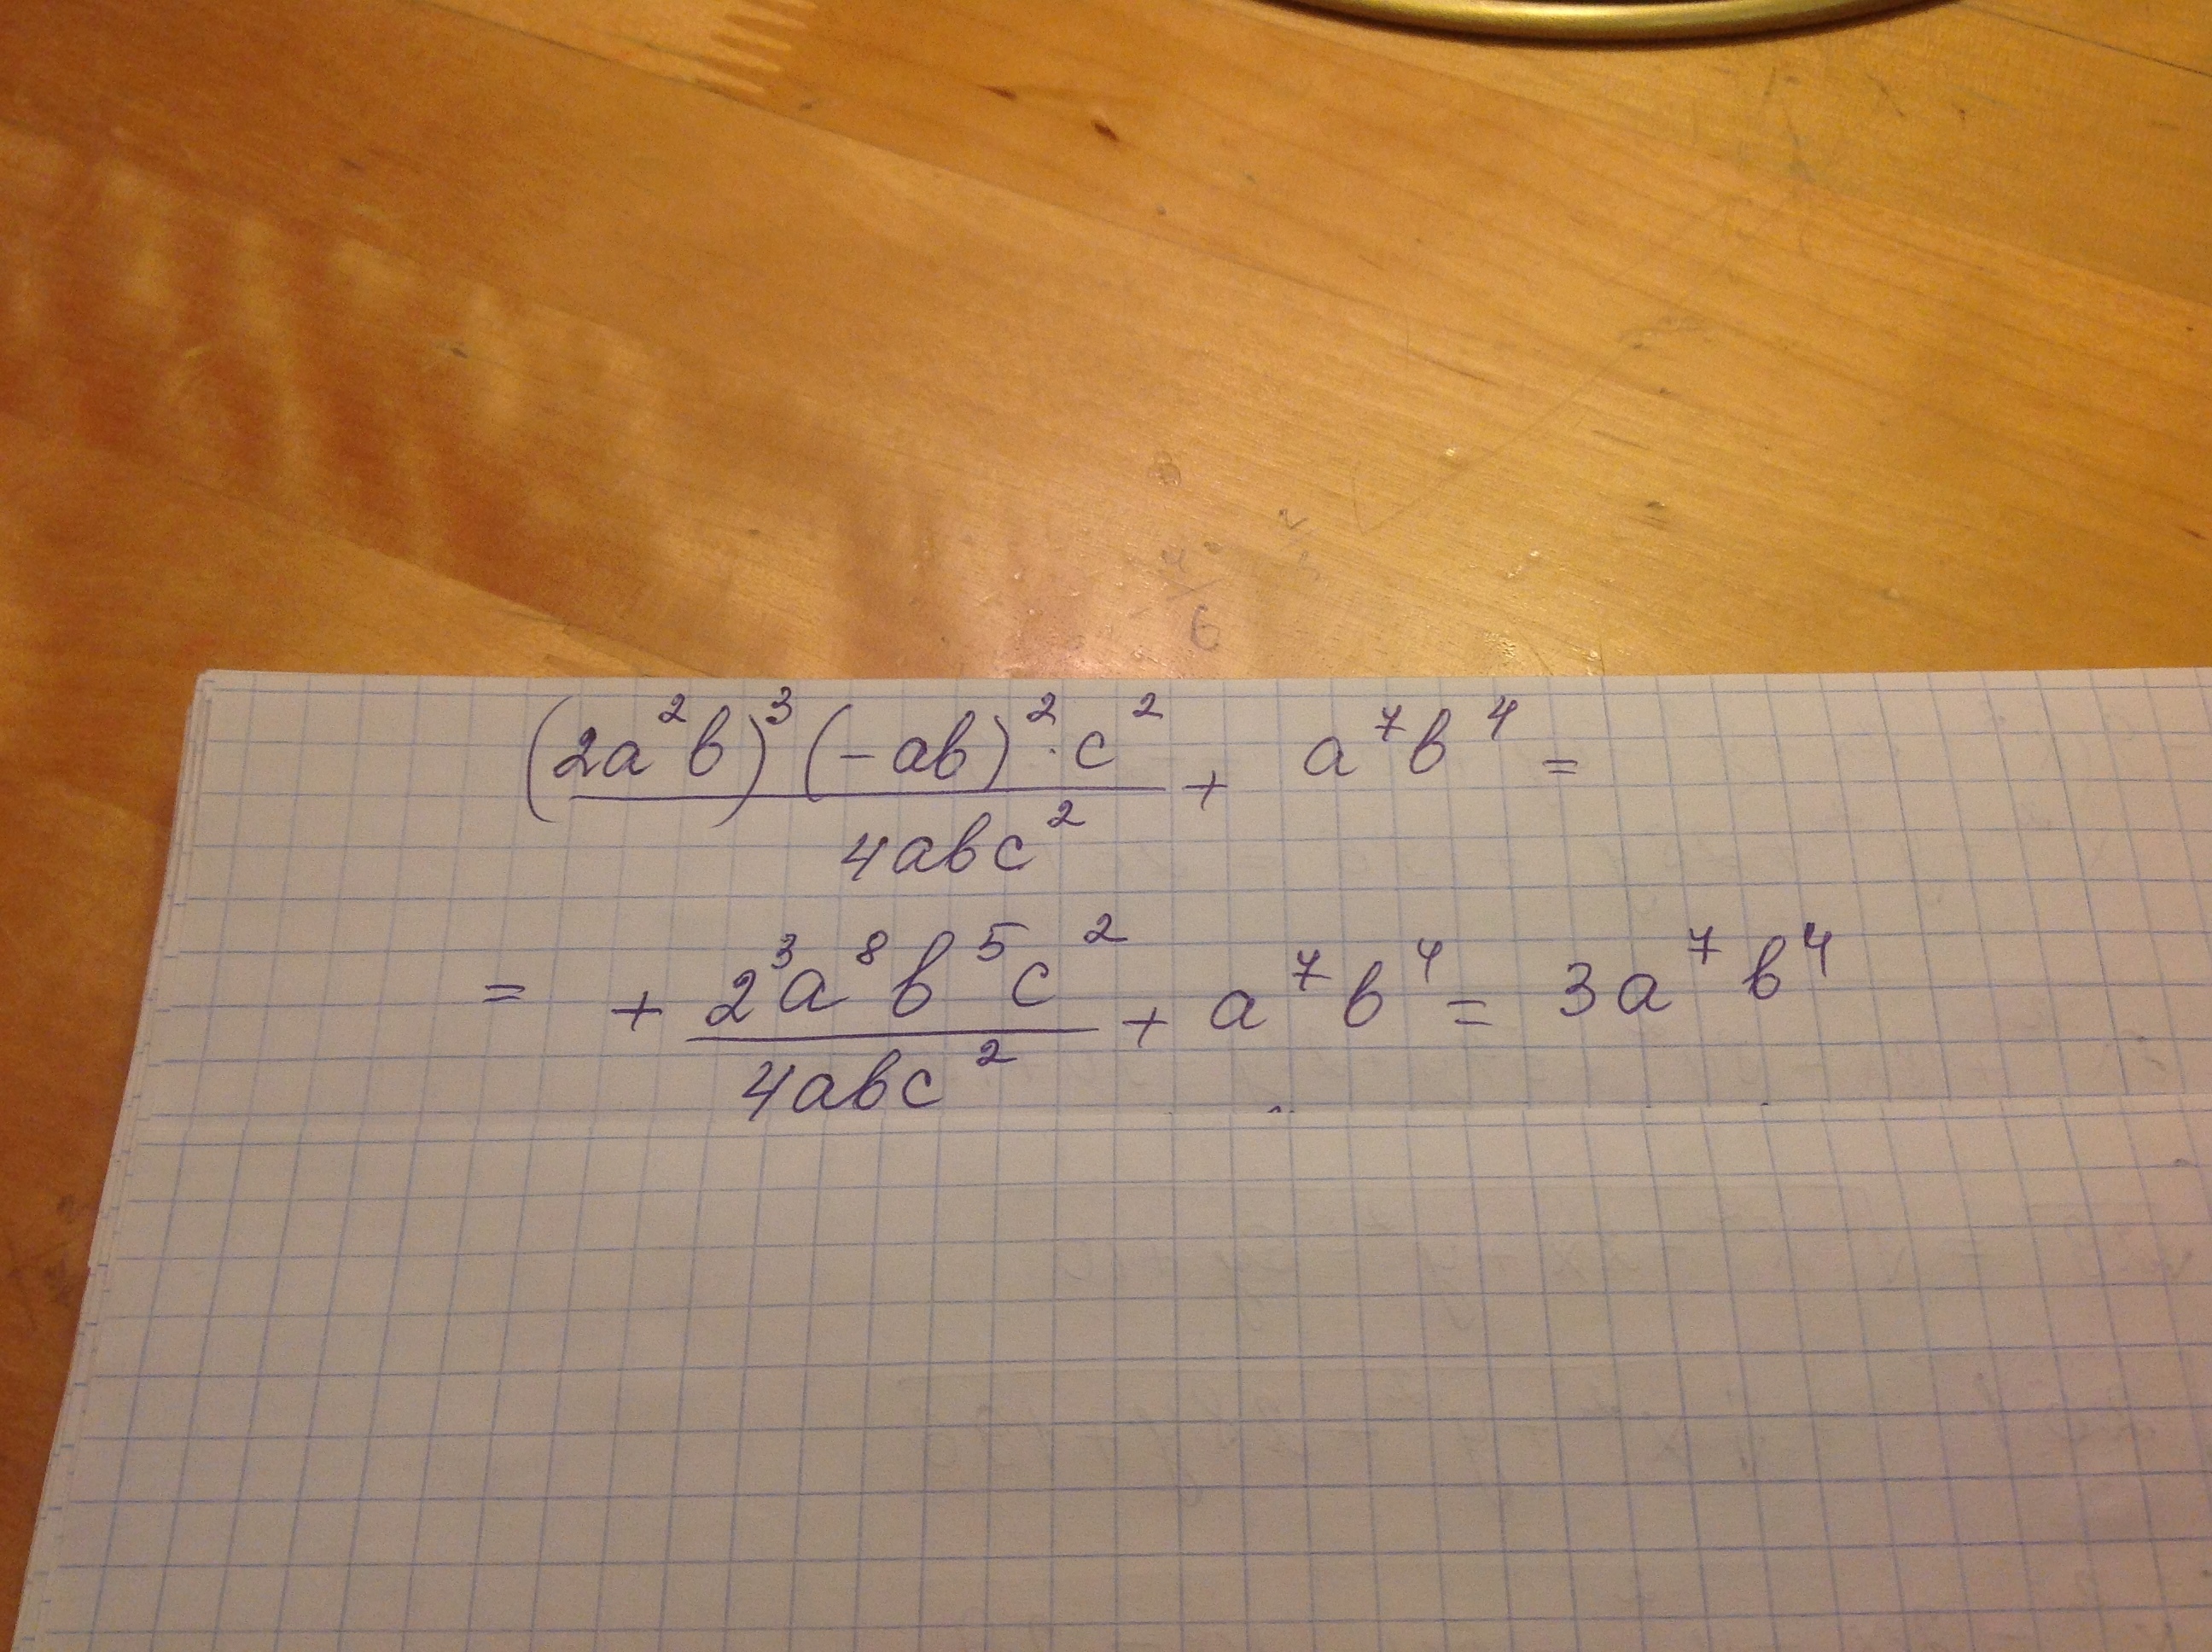 (2a²b)³(-ab)²·c²/4abc² + a⁷b⁴ =
= + 2³a⁸b⁵c²/4abc² + a⁷b⁴ = 3a⁷b⁴